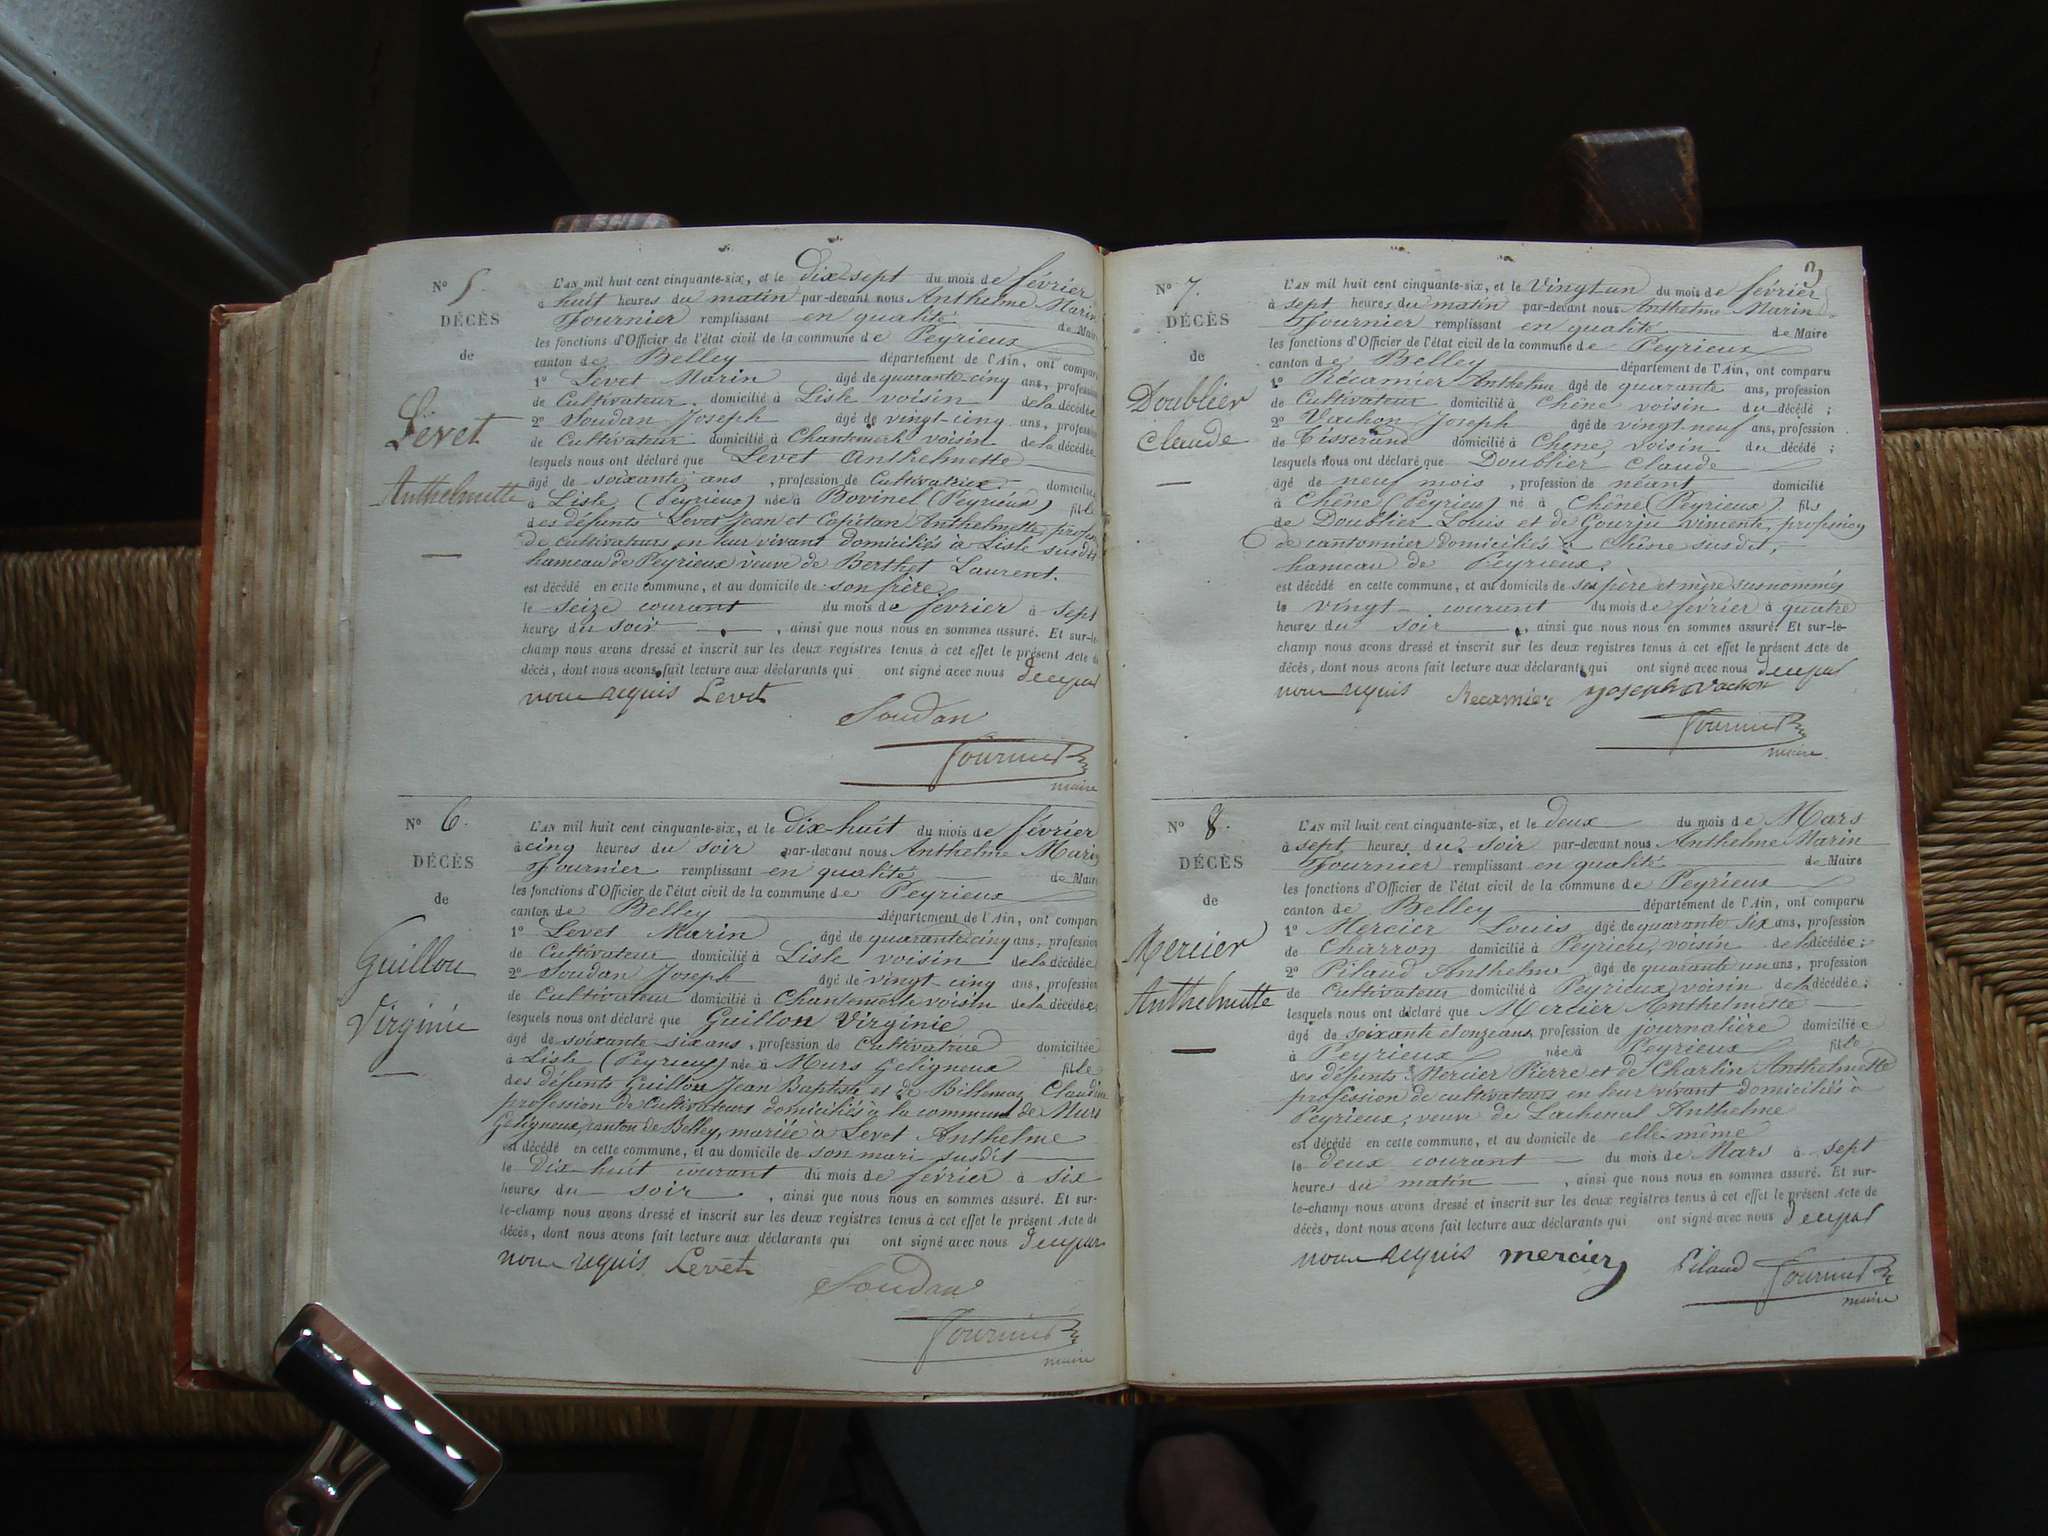 N° 5.
DÉCÈS
de
Levet
Anthelmette
L'AN mil huit cent cinquante-six, et le dix-sept du mois de février
à huit heures du matin par-devant nous Anthelme Marin
Fournier remplissant en qualité de Maire
les fonctions d'Officier de l'état civil de la commune de Peyrieux
canton de Belley département de l'Ain, ont comparu
1° Levet Marin âgé de quarante-cinq ans, profession
de Cultivateur domicilié à Lisle voisin de la décédée
2° Soudan Joseph âgé de vingt-cinq ans, profession
de Cultivateur domicilié à Chantemerle voisin de la décédée
lesquels nous ont déclaré que Levet Anthelmette
âgé de soixante ans, profession de Cultivatrice domiciliée
à Lisle (Peyrieux) née à Bovinel (Peyrieux) fille
des défunts Levet Jean et Capitan Anthelmette, profes
de cultivateurs en leur vivant domiciliés à Lisle susdit
hameau de Peyrieux veuve de Berthet Laurent.
est décédé en cette commune, et au domicile de son frère
le seize courant du mois de février à sept
heures du soir, ainsi que nous nous en sommes assuré. Et sur-le-
champ nous avons dressé et inscrit sur les deux registres tenus à cet effet le présent Acte de
décès, dont nous avons fait lecture aux déclarants qui ont signé avec nous de ce par
nous requis Levet
Soudan
Fournier
maire
N° 6.
DÉCÈS
de
Guillon
Virginie
L'AN mil huit cent cinquante-six, et le dix-huit du mois de février
à cinq heures du soir par-devant nous Anthelme Marin
Fournier remplissant en qualité de Maire
les fonctions d'Officier de l'état civil de la commune de Peyrieux
canton de Belley département de l'Ain, ont comparu
1° Levet Marin âgé de quarante cinq ans, profession
de Cultivateur domicilié à Lisle voisin de la décédée
2° Soudan Joseph âgé de vingt-cinq ans, profession
de Cultivateur domicilié à Chantemerle voisin de la décédée
lesquels nous ont déclaré que Guillon Virginie
âgé de soixante-six ans, profession de Cultivatrice domiciliée
à Lisle (Peyrieux) née à Murs Geligneux fille
des défunts Guillon Jean Baptiste et de Billemaz Claudine
profession de Cultivateurs domiciliés à la commune de Murs
Geligneux, canton de Belley, mariée à Levet Anthelme
est décédé en cette commune, et au domicile de son mari susdit
le dix-huit courant du mois de février à six
heures du soir, ainsi que nous nous en sommes assuré. Et sur-
le-champ nous avons dressé et inscrit sur les deux registres tenus à cet effet le présent Acte de
décès, dont nous avons fait lecture aux déclarants qui ont signé avec nous de ce par
nous requis Levet
Soudan
Fournier
maire
3
N° 7.
DÉCÈS
de
Doublier
Claude
L'AN mil huit cent cinquante-six, et le Vingt un du mois de février
à sept heures du matin par-devant nous Anthelme Marin
Fournier remplissant en qualité de Maire
les fonctions d'Officier de l'état civil de la commune de Peyrieux
canton de Belley département de l'Ain, ont comparu
1° Récamier Anthelme âgé de quarante ans, profession
de Cultivateur domicilié à Chêne voisin du décédé ;
2° Vachon Joseph âgé de vingt-neuf ans, profession
de Tisserand domicilié à Chêne, voisin du décédé ;
lesquels nous ont déclaré que Doublier Claude
âgé de neuf mois, profession de néant domicilié
à Chêne (Peyrieu) né à Chêne (Peyrieux) fils
de Doublier Louis et de Gourju vincente, profession
de cantonnier domiciliés à Chêne susdit,
hameau de Peyrieux.
est décédé en cette commune, et au domicile de ses père et mère susnommés
le vingt courant du mois de février à quatre
heures du soir, ainsi que nous nous en sommes assuré. Et sur-le-
champ nous avons dressé et inscrit sur les deux registres tenus à cet effet le présent Acte de
décès, dont nous avons fait lecture aux déclarants qui ont signé avec nous de ce par
nous requis Recamier Joseph Vachon
Fournier
maire
N° 8.
DÉCÈS
de
Mercier
Anthelmette
L'AN mil huit cent cinquante-six, et le deux du mois de Mars
à sept heures du soir par-devant nous Anthelme Marin
Fournier remplissant en qualité de Maire
les fonctions d'Officier de l'état civil de la commune de Peyrieux
canton de Belley département de l'Ain, ont comparu
1° Mercier Louis âgé de quarante six ans, profession
de Charron domicilié à Peyrieu, voisin de la décédée ;
2° Pilaud Anthelme âgé de quarante un ans, profession
de Cultivateur domicilié à Peyrieux voisin de la décédée ;
lesquels nous ont déclaré que Mercier Anthelmette
âgé de soixante et onze ans, profession de journalière domiciliée
à Peyrieux née à Peyrieux fille
des défunts Mercier Pierre et de Charlin Anthelmette
profession de cultivateurs en leur vivant domiciliés à
Peyrieux ; veuve de Lachenal Anthelme
est décédé en cette commune, et au domicile de elle-même
le deux courant du mois de Mars à sept
heures du matin, ainsi que nous nous en sommes assuré. Et sur-
le-champ nous avons dressé et inscrit sur les deux registres tenus à cet effet le présent Acte de
décès, dont nous avons fait lecture aux déclarants qui ont signé avec nous de ce par
nous requis mercier Pilaud Fournier
maire